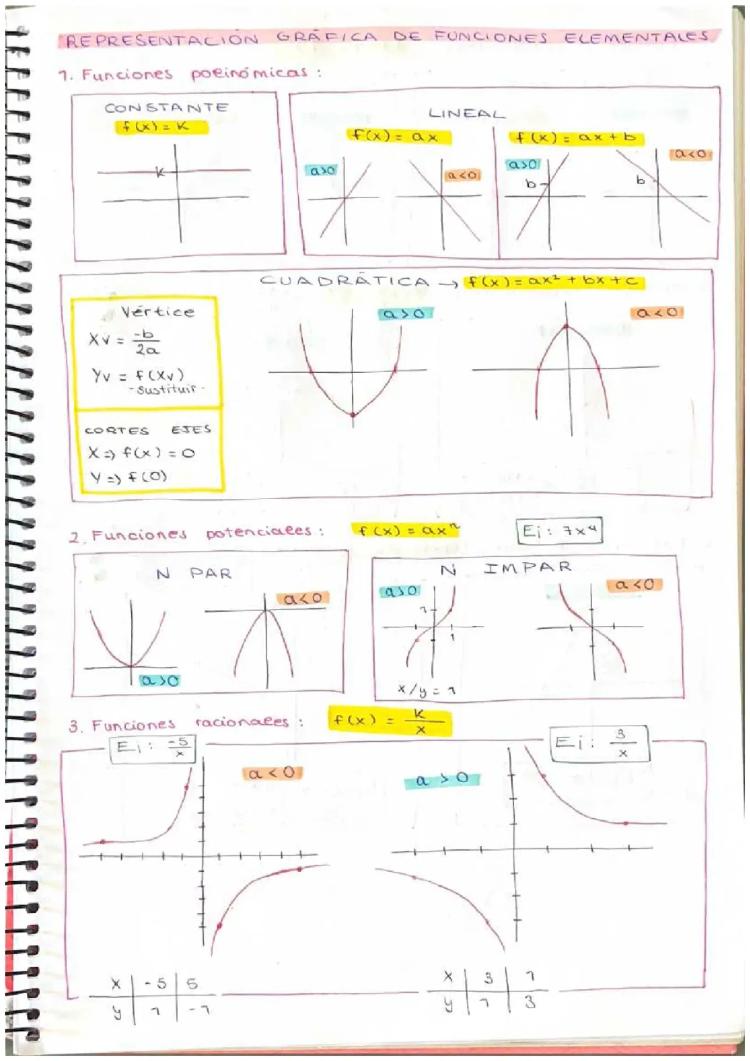 REPRESENTACIÓN GRÁFICA DE FUNCIONES ELEMENTALES
1. Funciones polinómicas:
CONSTANTE
f(x) = K
K
LINEAL
f(x) = ax
a>0
a<0
f(x) = ax + b
a>0
b
a<0
b
CUADRÁTICA → f(x) = ax² + bx + c
Vértice
Xv = -b/2a
Yv = f(Xv)
-sustituir-
CORTES EJES
X => f(x) = 0
Y => f(0)
a>0
a<0
2. Funciones potenciales: f(x) = axⁿ Ej: 7x⁴
N PAR
a>0
a<0
N IMPAR
a>0
1
1
x/y = 1
a<0
3. Funciones racionales: f(x) = K/x
Ej: -5/x
a<0
a>0
Ej: 3/x
x | -5 | 5
y | 1 | -1
x | 3 | 1
y | 1 | 3